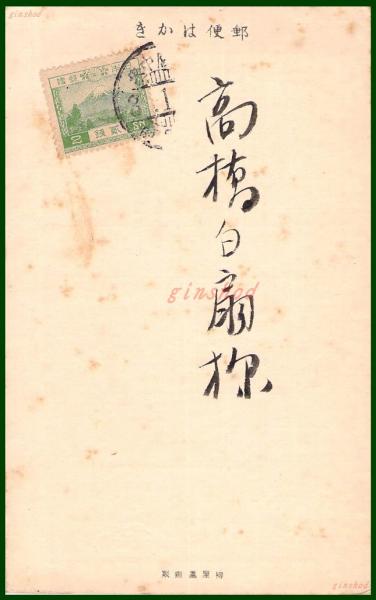 ginshod
郵便はかき
貳錢
高橋白扇様
ginshod
ginshod